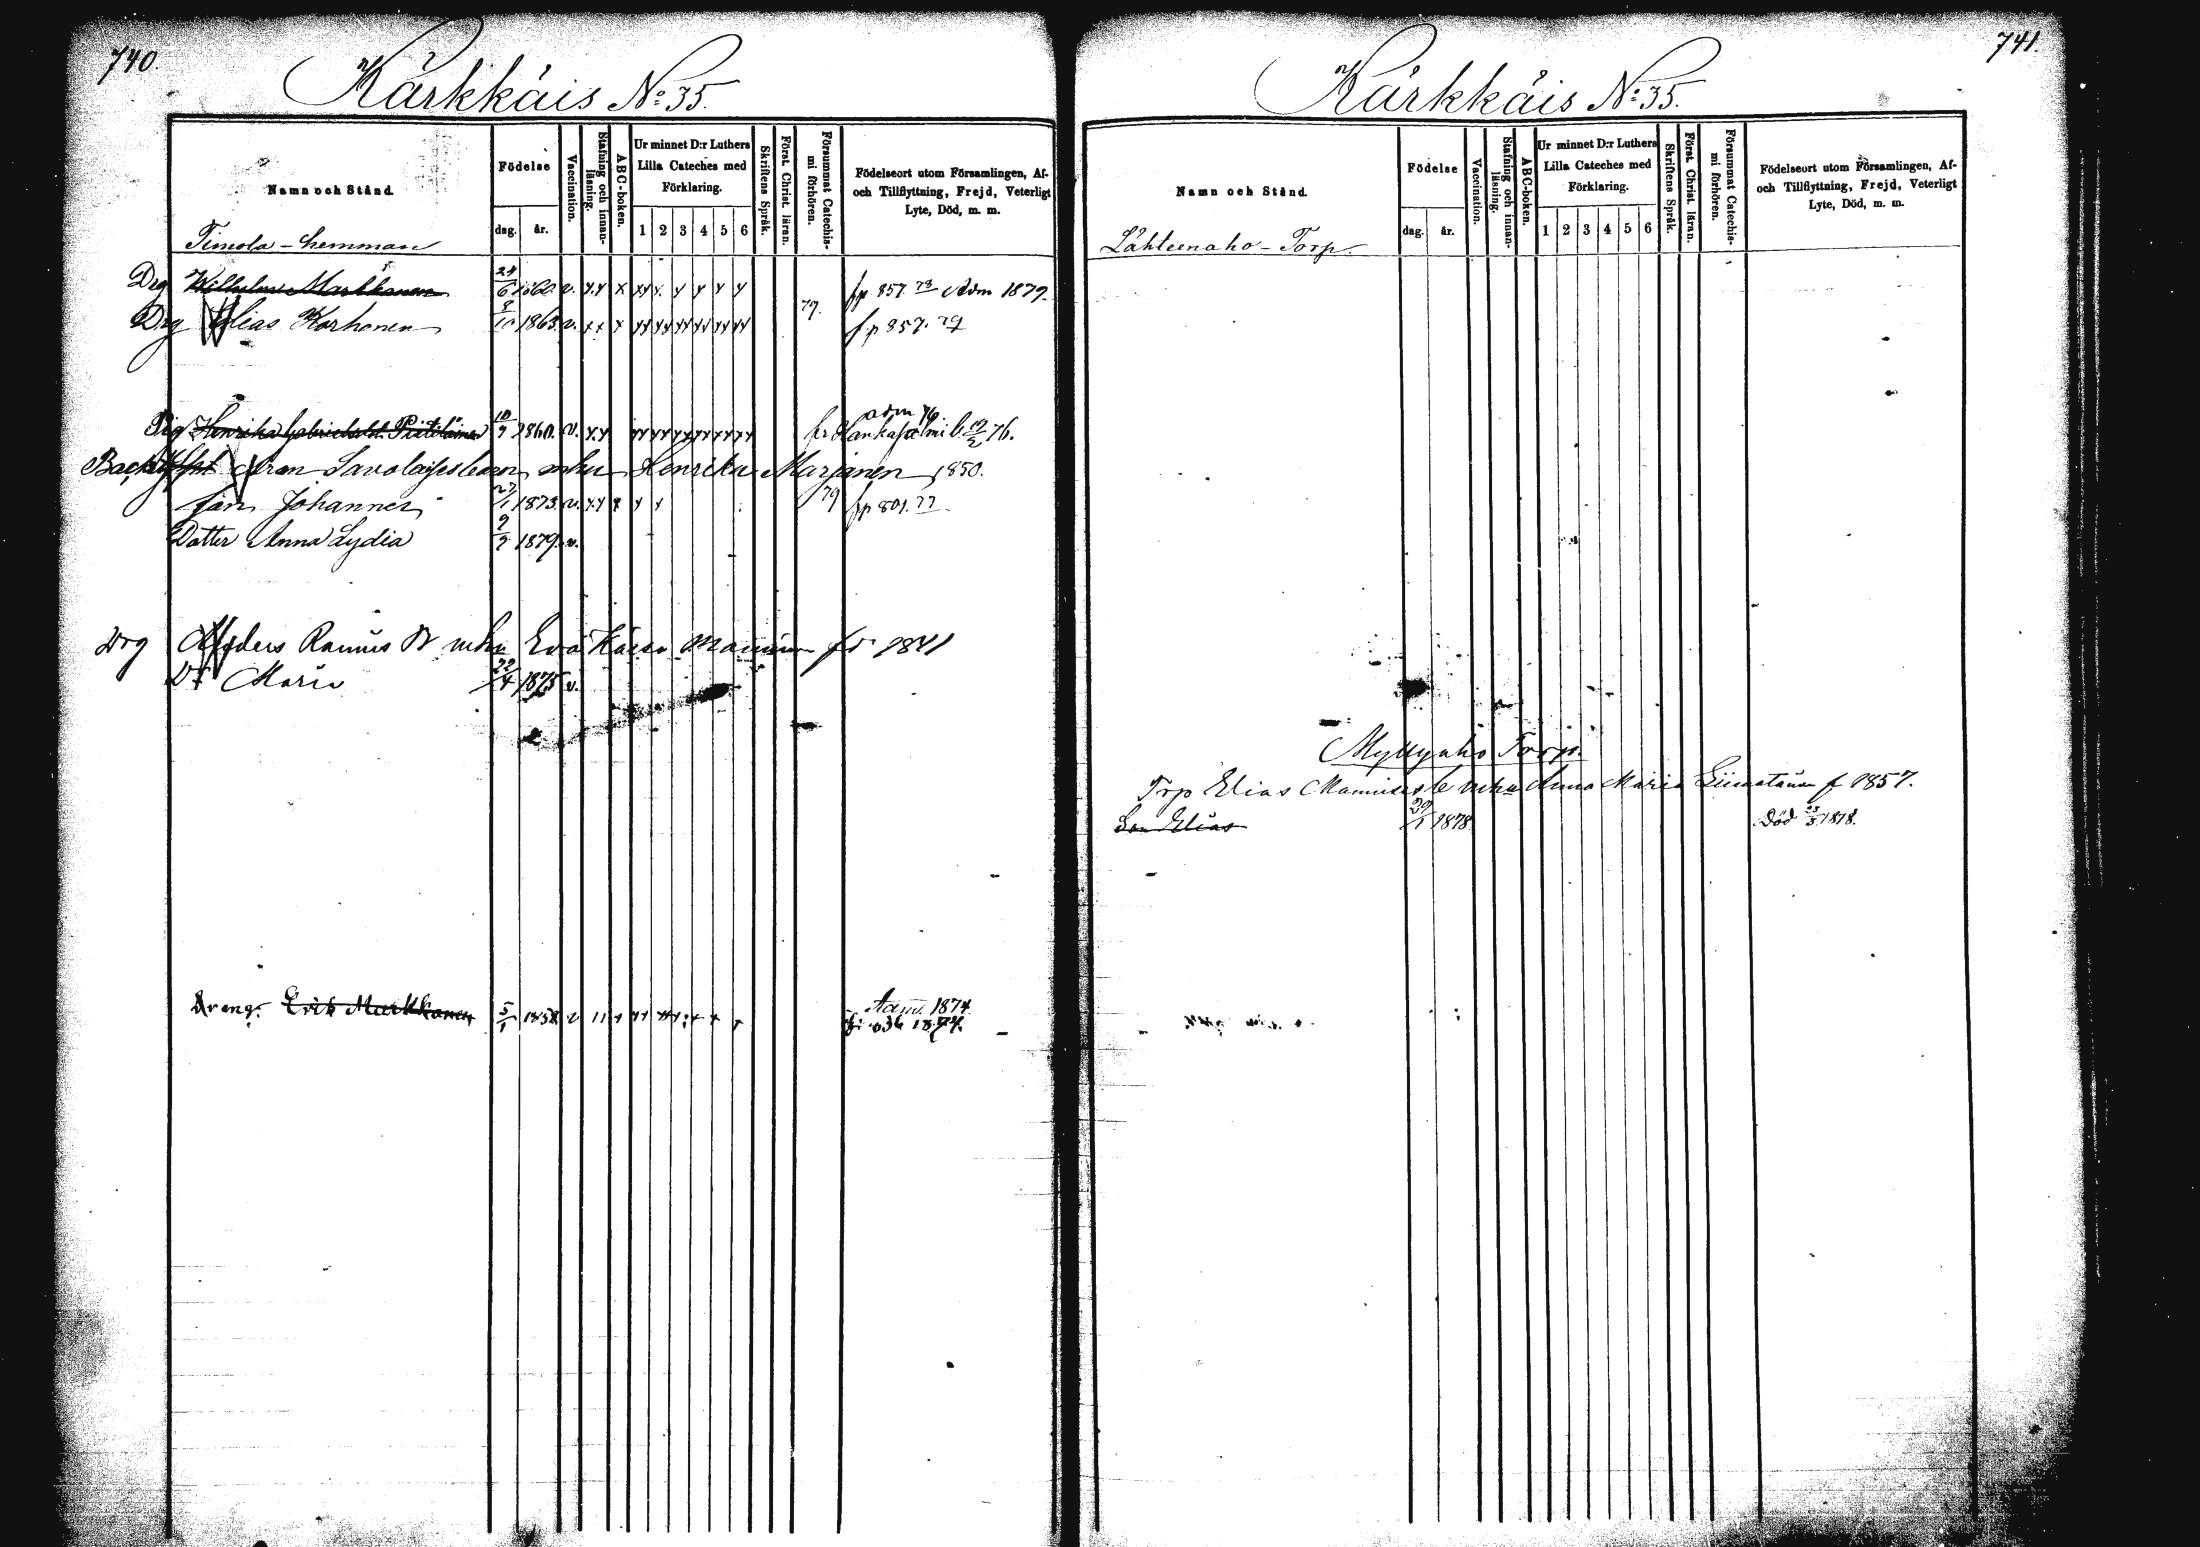 740.
Kärkkäis No: 35.
Namn och Stånd.
Födelse
dag.
år.
Vaccination.
Stafning och innan-läsning.
ABC-boken.
Ur minnet D:r Luthers
Lilla Cateches med
Förklaring.
1 2 3 4 5 6
Skriftens Språk.
Först. Christ. läran.
Försummat Catechis-mi förhören.
Födelseort utom Församlingen, Af-
och Tillflyttning, Frejd, Veterligt
Lyte, Död, m. m.
Timola - hemman
Drg Wilhelm Markkanen 24/6 1860. v. fp 857. 78 Adm 1879.
Drg Elias Korhonen 8/10 1863. v. 79. fp 857. 79
adm 76
Pig Henrika Gabrielsdr. Pietiläinen 10/9 1860. v. fr Hankasalmi b. 76.
Aron Savolaisslean enka Henrika Marjanen 1850.
Johannes 27/1 1873. v. 79 fp 801. 77
Dotter Anna Lydia 9/9 1879. v.
Drg Anders Enka Eva Kaisa 1841
Dr Maria 22/4 1875 v.
Dreng. Erik Markkanen 5/1 1858 v Adm. 1874
1874.
741.
Kärkkäis No: 35.
Namn och Stånd.
Födelse
dag.
år.
Vaccination.
Stafning och innan-läsning.
ABC-boken.
Ur minnet D:r Luthers
Lilla Cateches med
Förklaring.
1 2 3 4 5 6
Skriftens Språk.
Först. Christ. läran.
Försummat Catechis-mi förhören.
Födelseort utom Församlingen, Af-
och Tillflyttning, Frejd, Veterligt
Lyte, Död, m. m.
Lähteenaho - Torp.
Myllyaho Torp.
Trp Elias enka Anna Maria Liimatain f 1857.
Son Elias 29/1 1878 Död 1878.